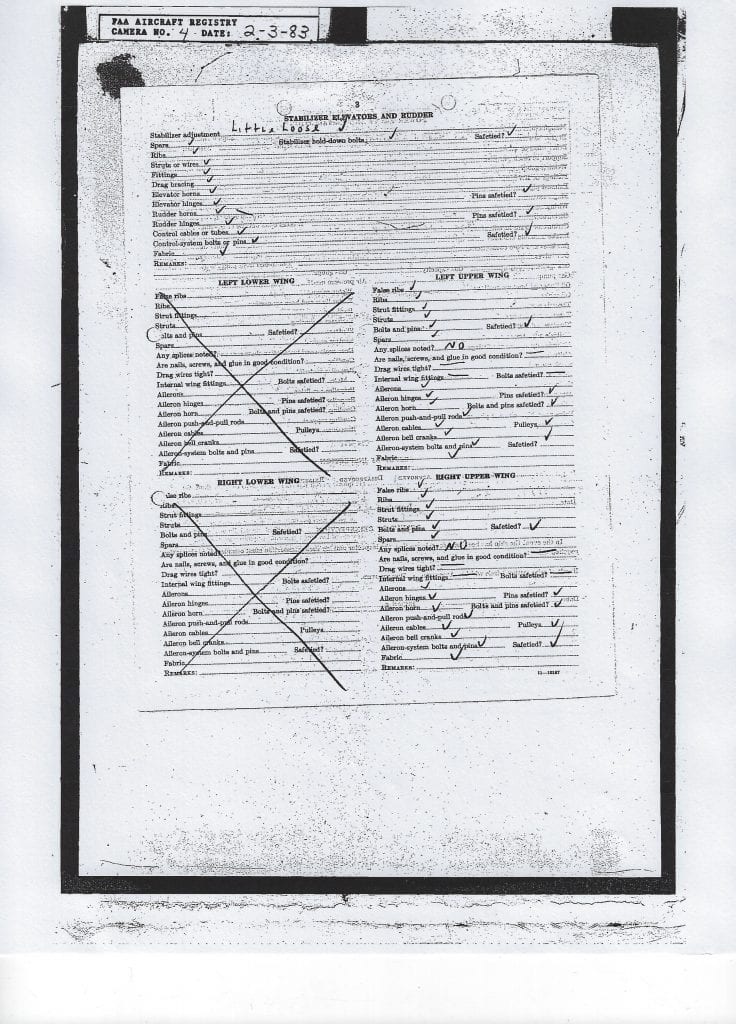 FAA AIRCRAFT REGISTRY
CAMERA NO. 4 DATE: 2-3-83
3
STABILIZER ELEVATORS AND RUDDER
Stabilizer adjustment Little Loose ✓
Spars ✓ Stabilizer hold-down bolts ✓ Safetied? ✓
Ribs ✓
Struts or wires ✓
Fittings ✓
Drag bracing ✓
Elevator horns ✓ Pins safetied? ✓
Elevator hinges ✓
Rudder horns ✓ Pins safetied? ✓
Rudder hinges ✓
Control cables or tubes ✓ Safetied? ✓
Control-system bolts or pins ✓
Fabric ✓
REMARKS:
LEFT LOWER WING
False ribs
Ribs
Strut fittings
Struts
olts and pins Safetied?
Spars
Any splices noted?
Are nails, screws, and glue in good condition?
Drag wires tight?
Internal wing fittings Bolts safetied?
Ailerons
Aileron hinges Pins safetied?
Aileron horn Bolts and pins safetied?
Aileron push-and-pull rods
Aileron cables Pulleys
Aileron bell cranks
Aileron-system bolts and pins Safetied?
Fabric
REMARKS:
LEFT UPPER WING
False ribs ✓
Ribs ✓
Strut fittings ✓
Struts ✓
Bolts and pins ✓ Safetied? ✓
Spars ✓
Any splices noted? NO
Are nails, screws, and glue in good condition? —
Drag wires tight? —
Internal wing fittings — Bolts safetied? —
Ailerons ✓
Aileron hinges ✓ Pins safetied? ✓
Aileron horn ✓ Bolts and pins safetied? ✓
Aileron push-and-pull rods ✓
Aileron cables ✓ Pulleys ✓
Aileron bell cranks ✓
Aileron-system bolts and pins ✓ Safetied? ✓
Fabric ✓
REMARKS:
RIGHT LOWER WING
lse ribs
Ribs
Strut fittings
Struts
Bolts and pins Safetied?
Spars
Any splices noted?
Are nails, screws, and glue in good condition?
Drag wires tight?
Internal wing fittings Bolts safetied?
Ailerons
Aileron hinges Pins safetied?
Aileron horn Bolts and pins safetied?
Aileron push-and-pull rods
Aileron cables Pulleys
Aileron bell cranks
Aileron-system bolts and pins Safetied?
Fabric
REMARKS:
RIGHT UPPER WING
False ribs ✓
Ribs ✓
Strut fittings ✓
Struts ✓
Bolts and pins ✓ Safetied? ✓
Spars ✓
Any splices noted? NO
Are nails, screws, and glue in good condition? —
Drag wires tight? —
Internal wing fittings — Bolts safetied? —
Ailerons ✓
Aileron hinges ✓ Pins safetied? ✓
Aileron horn ✓ Bolts and pins safetied? ✓
Aileron push-and-pull rods ✓
Aileron cables ✓ Pulleys ✓
Aileron bell cranks ✓
Aileron-system bolts and pins ✓ Safetied? ✓
Fabric ✓
REMARKS: